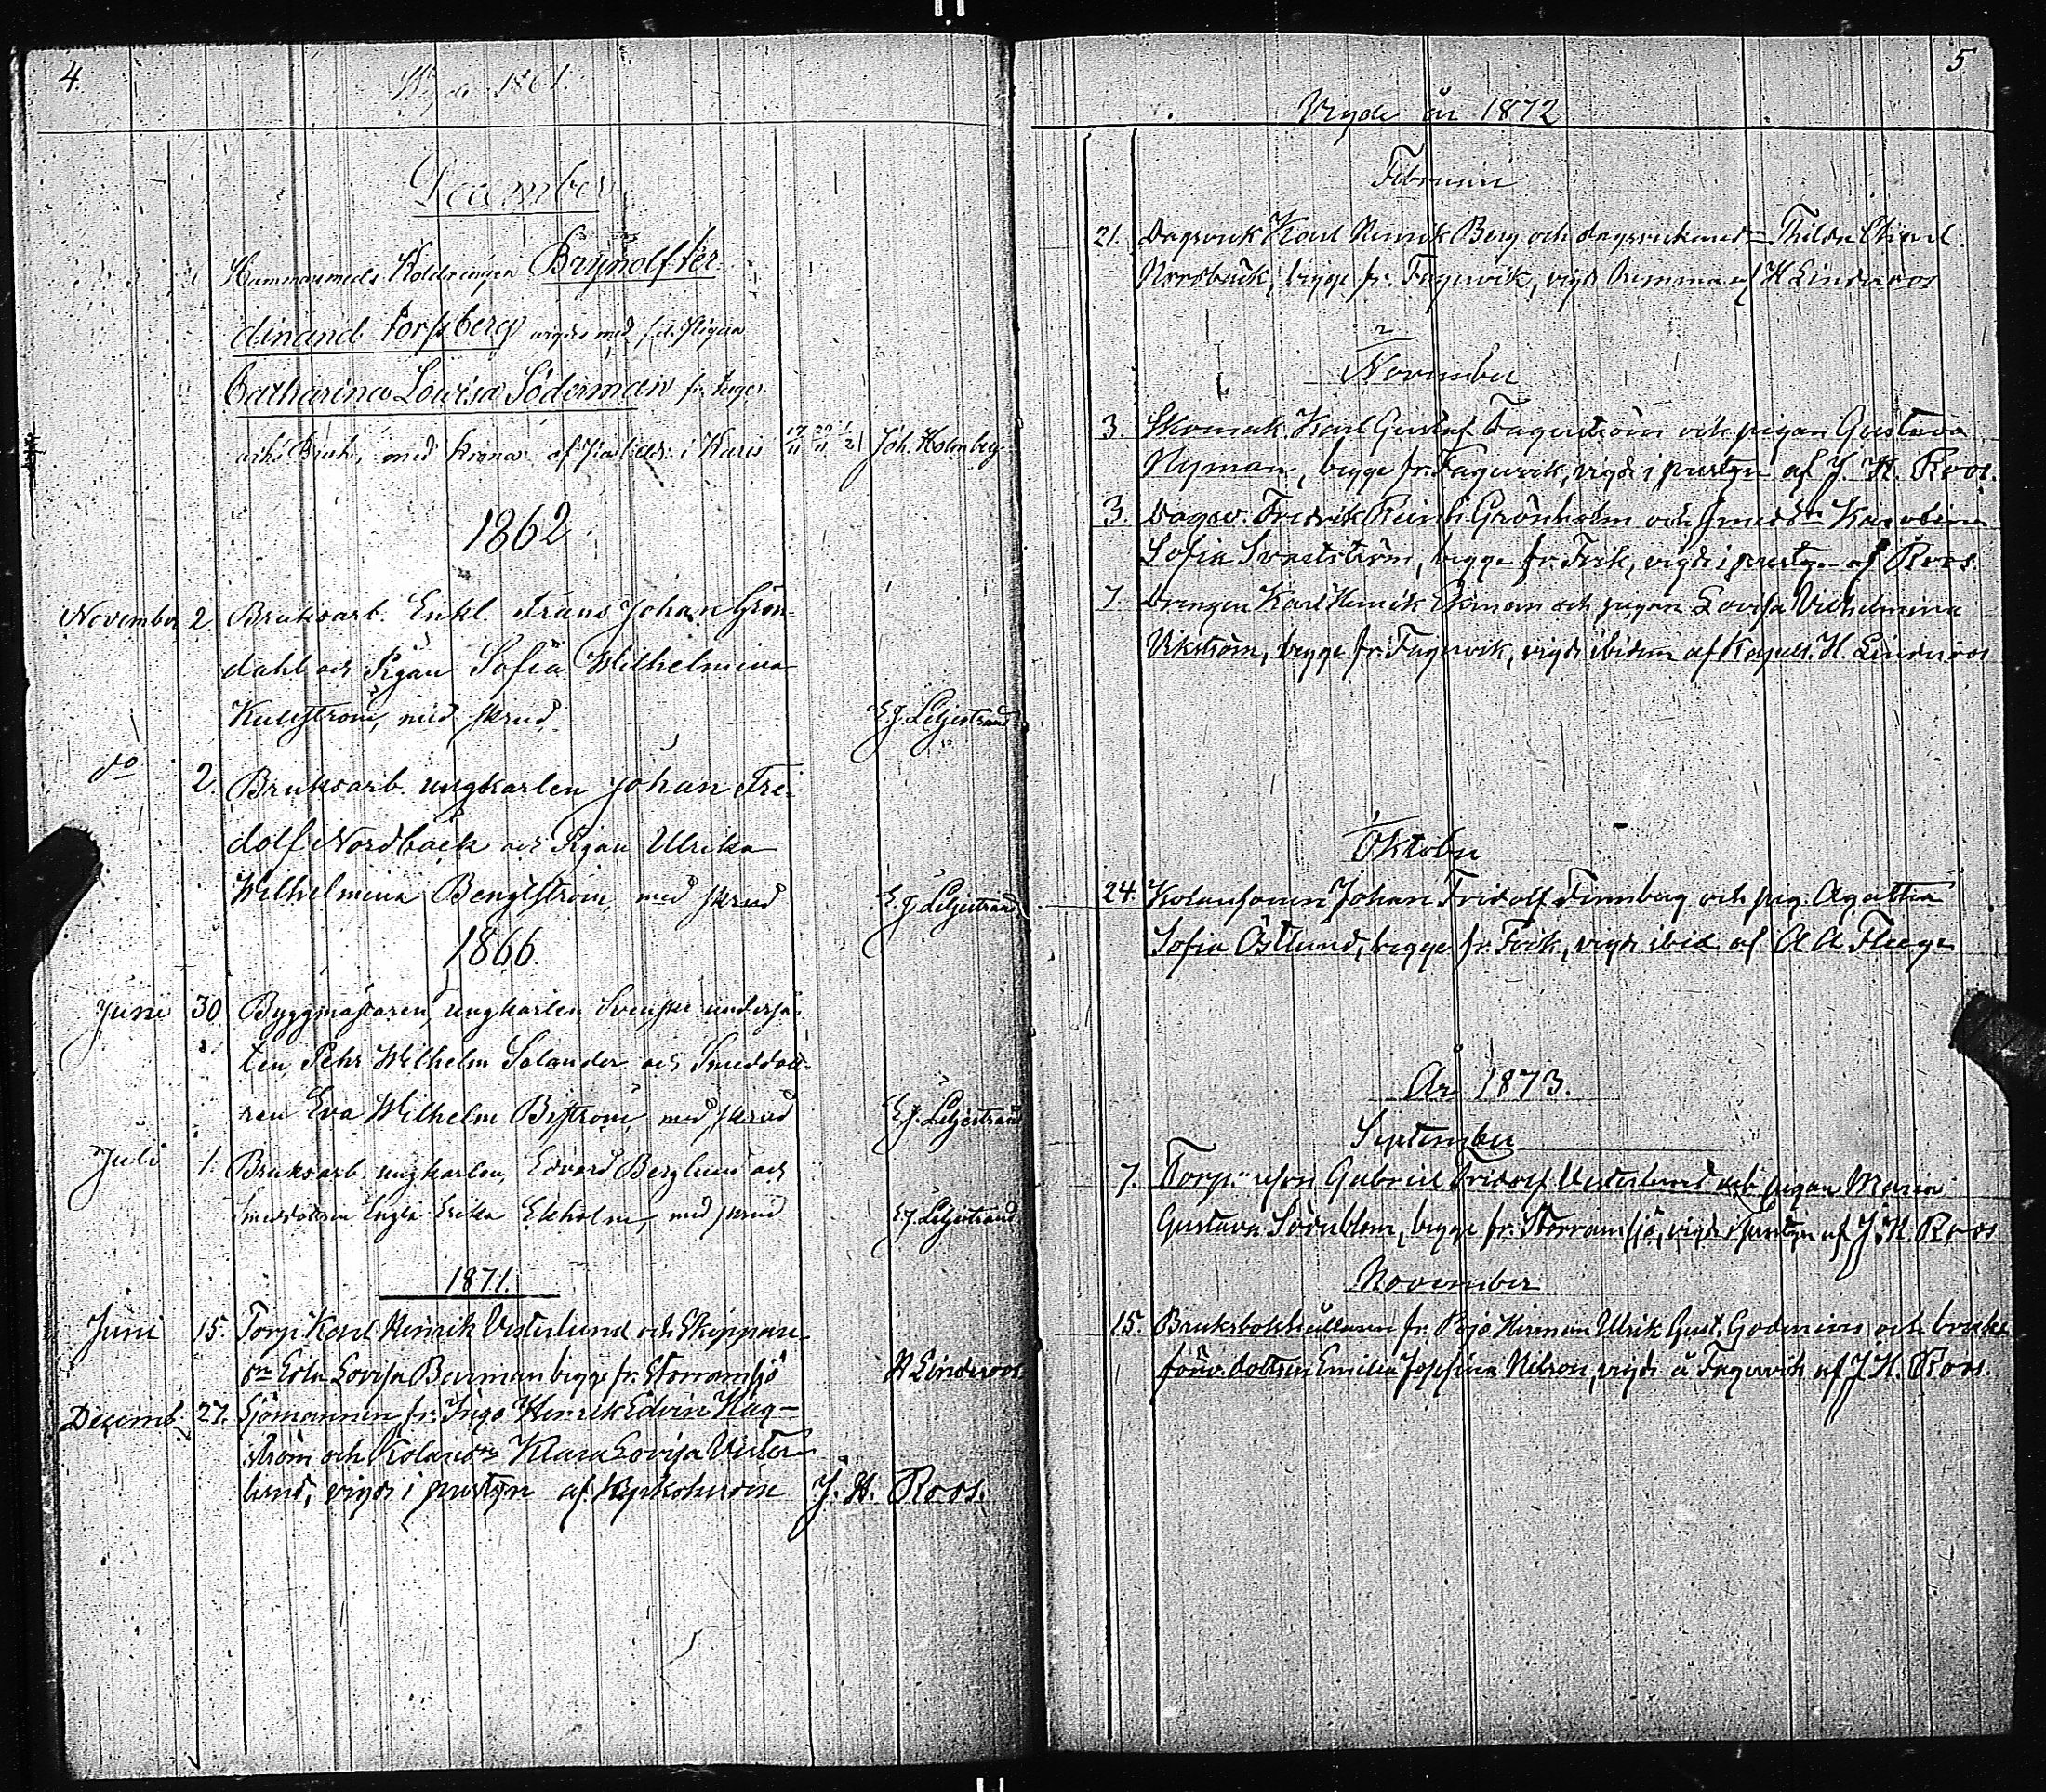 4.
1861.
December
Hammarsmeds Koldrengen Brynolf Fer
dinand Forsberg med Pigan
Catharina Lovisa Söderman fr. Fager
med krona af i Karis 17/11 Joh. Holmberg
1862
November 2 Bruksarb. Enkl. Frans Johan Grön-
dahl och Pigan Sofia Wilhelmina
Kullström, med skrud E. J. Liljestrand
do 2. Bruksarb. ungkarlen Johan Fri-
dolf Nordback och Pigan Ulrika
Wilhelmina Bengtström, med skrud E. J. Liljestrand
1866.
Juni 30 Byggmästaren, ungkarlen, Svenske underså-
ten, Pehr Wilhelm Solander och Smeddott-
ren Eva Wilhelm Byström, med skrud E. J. Liljestrand
Juli 1. Bruksarb. ungkarlen, Edvard Berglund och
Smeddottren Engla Erika Ekholm, med skrud E. J. Liljestrand
1871.
Juni 15. Torp. Karl Henrik Vesterlund och Skeppare
dr Lovisa Berman begge fr. Storramsjö H Linderoos
Decemb. 27. Sjömannen fr. Ingo Henrik Edvin Hag-
ström och Kolaredr Klara Lovisa Vester-
lund, vigde i prestgn af Kyrkoherden J. H. Roos.
5
Vigde år 1872
Februari
21. Dagsverk Karl Henrik Berg och Thilda
Nordbäck, begge fr. Fagervik, vigde hemma af H Linderoos
2
November
3. Skomak. Karl Gustaf Fagerström och pigan Gustava
Nyman, begge fr. Fagervik, vigde i prestgn af J. H. Roos.
3. Dagsv. Fredrik Reinh. Grönholm och smeddr Karolina
Sofia begge fr. Fvik, vigde i prestgn af Roos.
7. Drengen Karl Henrik Ekman och pigan Lovisa Vilhelmina
Vikström, begge fr. Fagervik, vigde ibidem af Kapell. H. Linderoos
1
Oktober
24. Johan Fridolf Finnberg och pig. Agatha
Sofia Östlund, begge fr. Fvik, vigde ibid. af A A
År 1873.
September
7. Torp. Gabriel Fridolf Vesterlund och pigan Maria
Gustava Söderblom, begge fr. Storramsjö, vigde i prestgn af J. H. Roos
November
15. Bruksbokhållaren fr. Bojo Herman Ulrik Gust. Godenius och bruks
förv. dottren Emilia Josefina Nelson, vigde å Fagervik af J H. Roos.